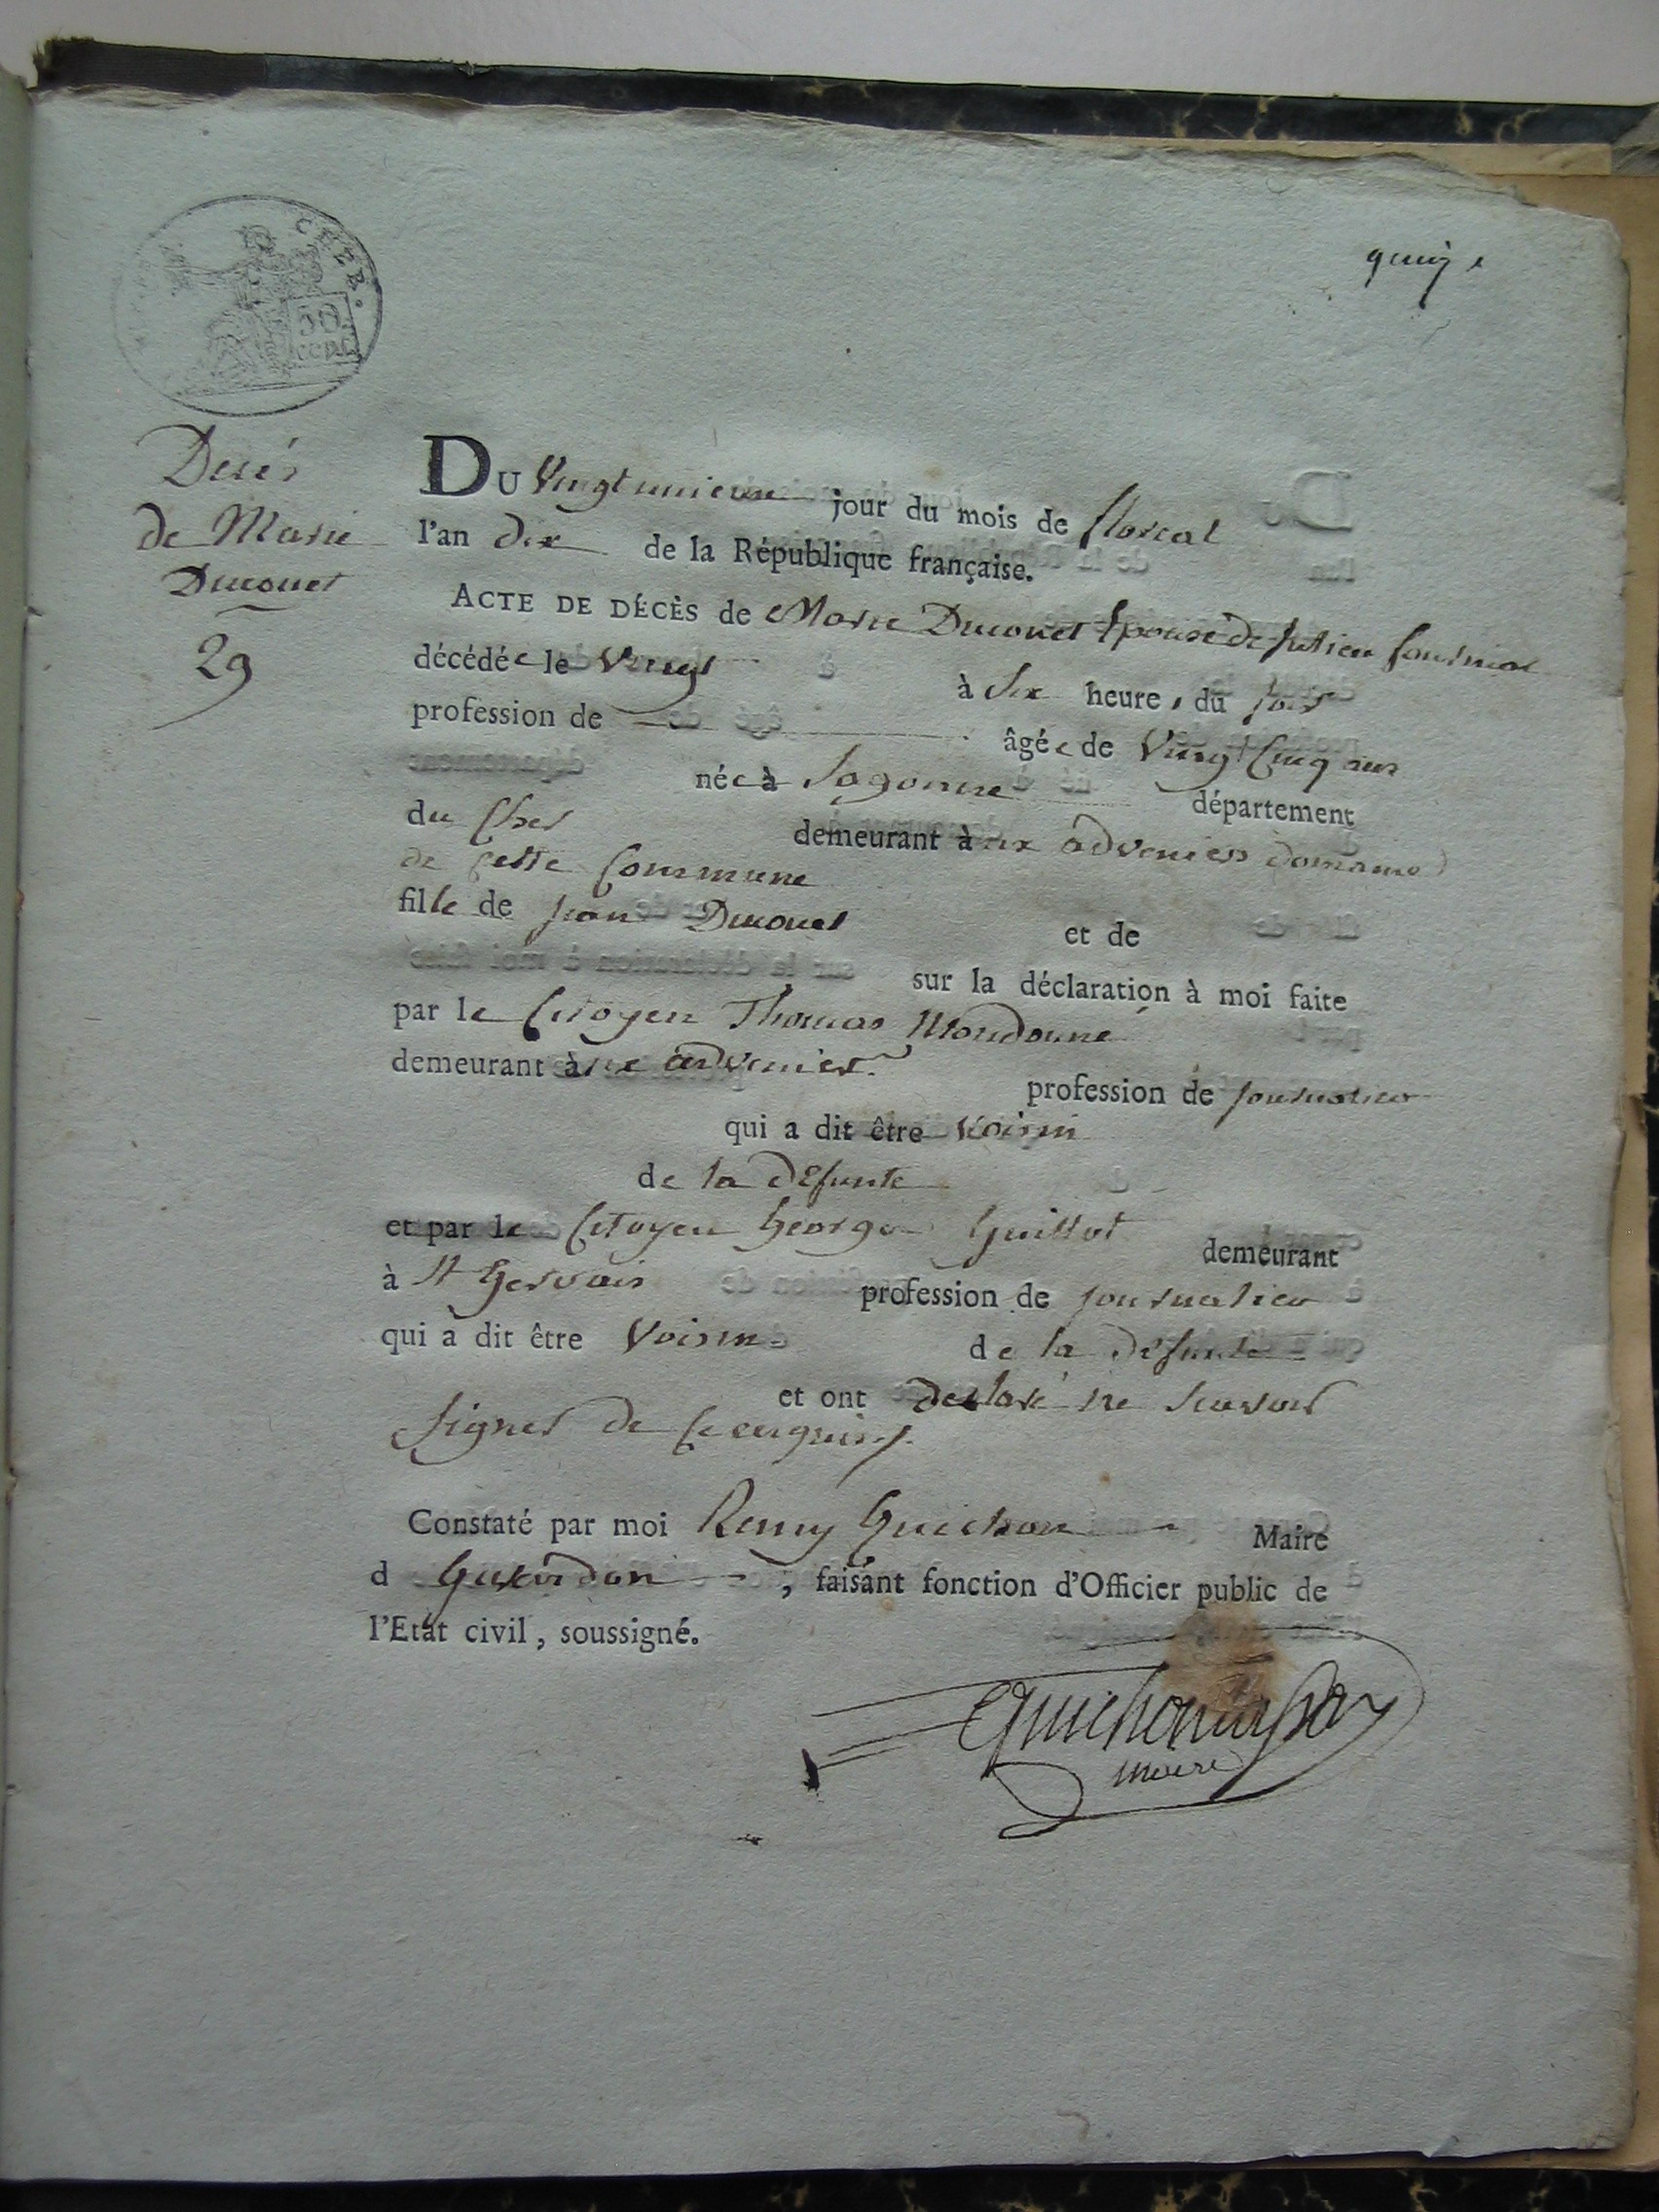 CHER.
50
cent.
quinze
Decés
de Marie
Ducouet
29
DU Vingt unieme jour du mois de floreal
l'an dix de la République française.
ACTE DE DÉCÈS de Marie Ducouet Epouse de
décédée le Vingt à Six heures du soir
profession de âgée de Vingt Cinq ans
née à Sagonne département
du Cher demeurant aux advenier domaine
de Cette Commune
fille de jean Ducouet et de
sur la déclaration à moi faite
par le Citoyen Thomas Moudonné
demeurant aux advenier profession de journalier
qui a dit être Voisin
de la defunte
et par le Citoyen George Guillot demeurant
à St Gervais profession de journalier
qui a dit être Voisin de la defunte
et ont declaré ne scavoir
signer de Ce enquis
Constaté par moi Remy Guichon Maire
d Givardon, faisant fonction d'Officier public de
l'Etat civil, soussigné.
maire